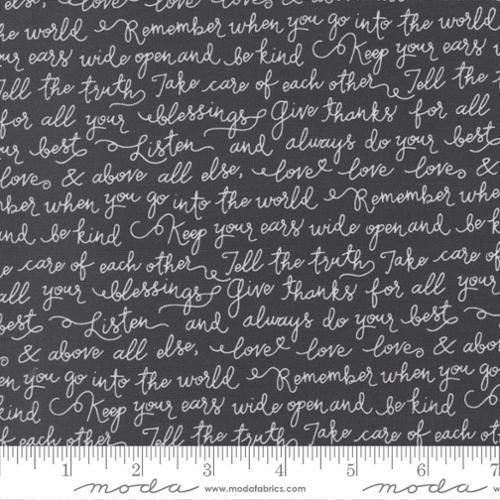 else, love love love & above all else,
he world Remember when you go into the world
ur ears wide open and be kind Keep your ears
Tell the truth Take care of each other Tell the t
for all your blessings Give thanks for all
ur best Listen and always do your best
love & above all else, love love love &
ber when you go into the world Remember wh
and be kind Keep your ears wide open and be k
e care of each other Tell the truth Take care o
all your blessings Give thanks for all your
best Listen and always do your best
& above all else, love love love & a
en you go into the world Remember when you g
kind Keep your ears wide open and be kind
of each other Tell the truth Take care of each ot
1 2 3 4 5 6 7
moda www.modafabrics.com moda www.modafabrics.com moda w